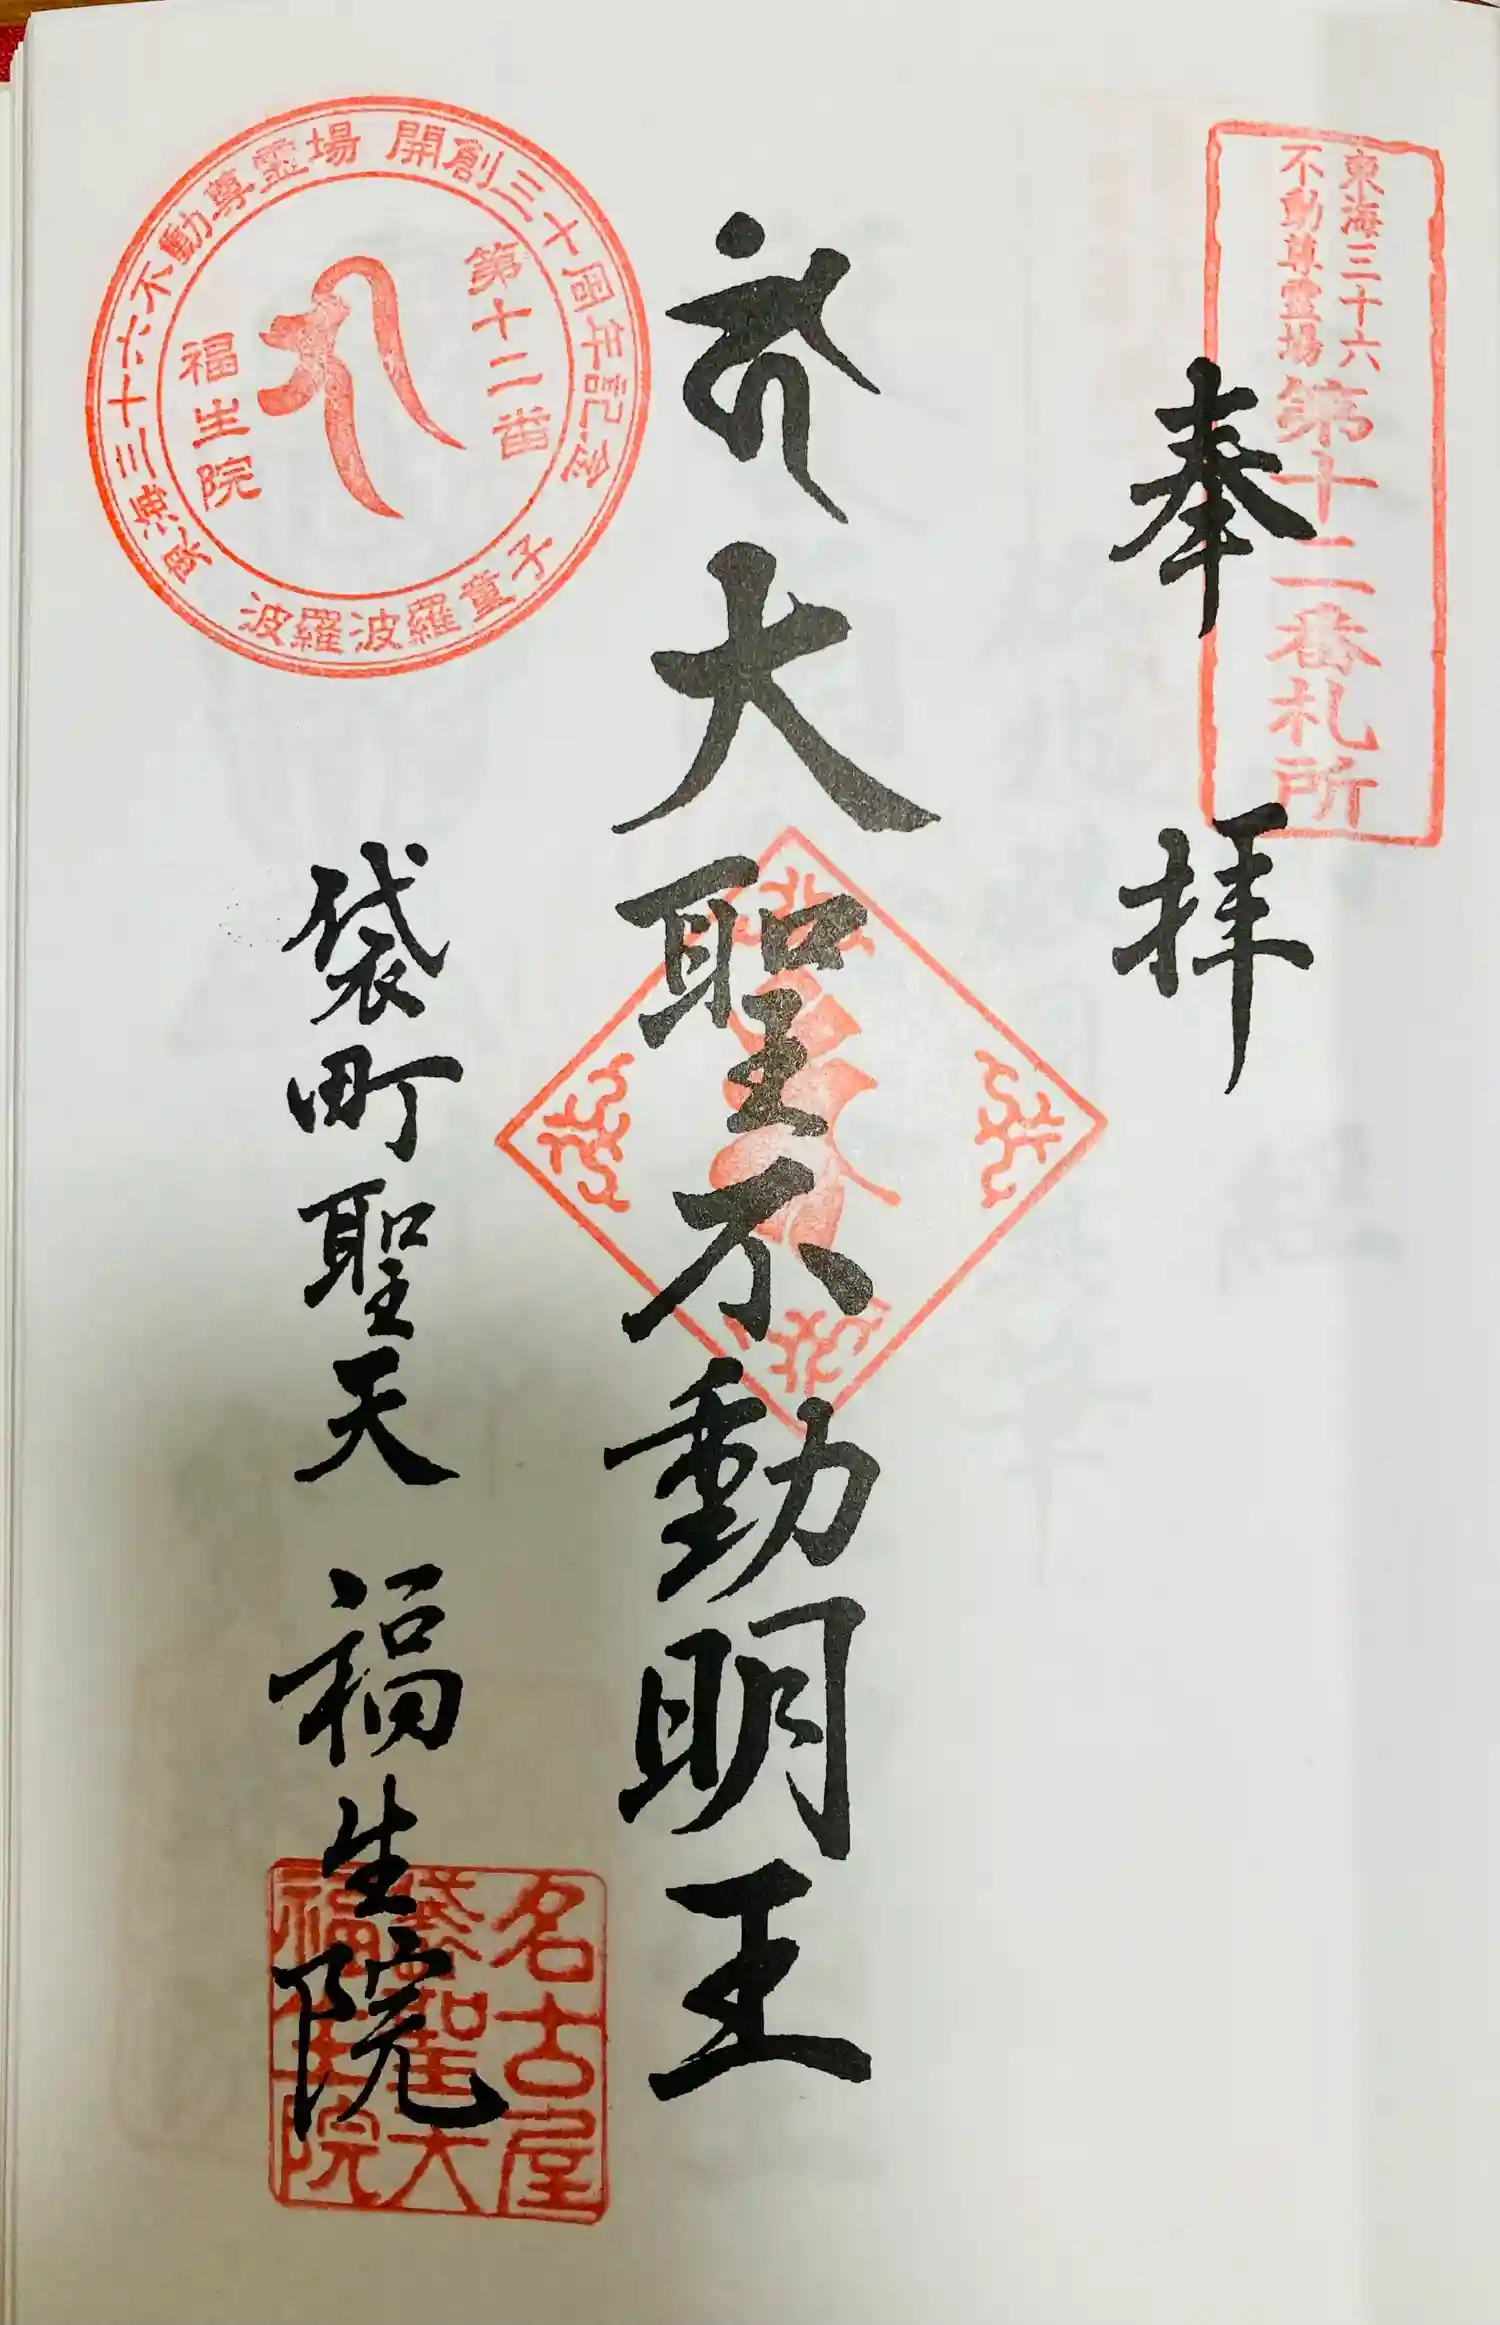 東海三十六
不動尊霊場
第十二番札所
奉拝
大聖不動明王
袋町聖天 福生院
東海三十六不動尊霊場 開創三十周年記念
波羅波羅童子
第十二番
福生院
名古屋
袋聖天
福生院